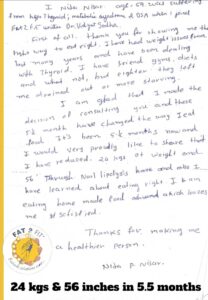 I Nita Nisar. age - 69 was suffering
from high Thyroid, metabolic syndrome & OSA when I joined
Fat2Fit under Dr.
First of all. Thank you for showing me the
right way to eat right. I have had weight issues from
last many years and have been dealing
with Thyroid. I have tried gyms, diets
and what not, but either they left
me drained out or more starving.
I am glad that I made the
decision of consulting you and these
5½ month have changed the way I eat
food. It's been 5½ months now and
I would very proudly like to share that
I have reduced 24 kgs of weight and
56 Through Nail lipolysis have and also I
have learned about eating right. I am
eating home made food which keeps
me satisfied.
Thanks for making me
a healthier person.
Nita P. Nisar.
FAT 2 FIT
24 kgs & 56 inches in 5.5 months